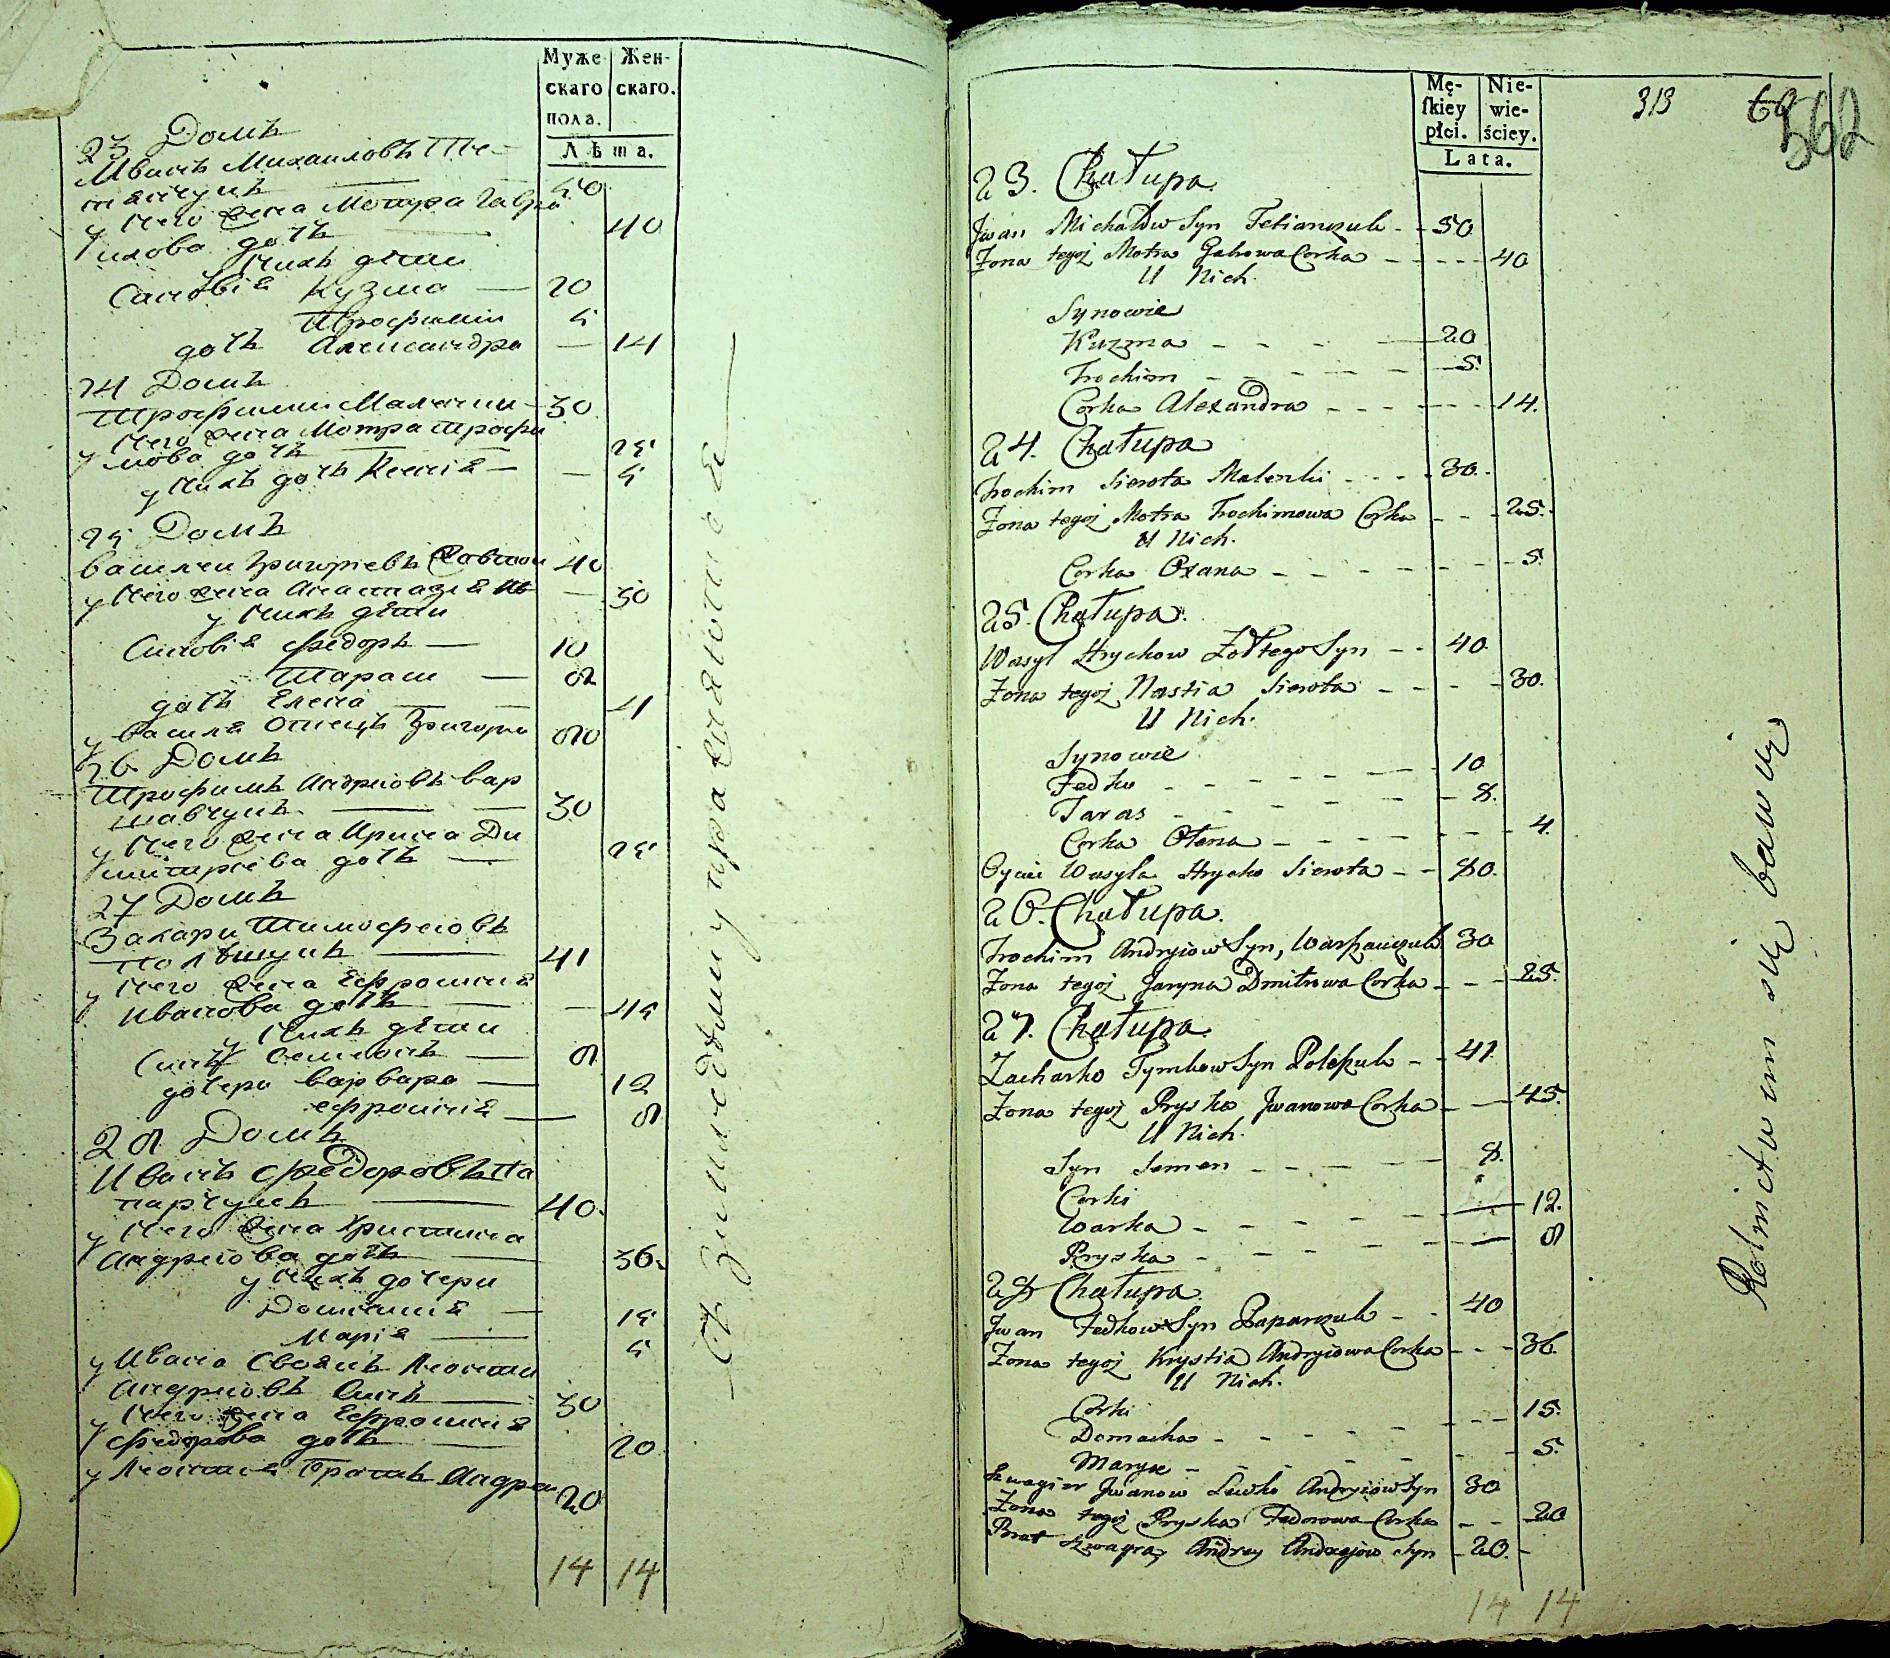 Муже Жен-
скаго скаго.
пола.
Лѣта.
23 Домъ
Иванъ Михаиловъ Те-
тянчукъ — 50
у Него жена Мотра Гаври
илова дочь — 40
у Нихъ дѣти
Синовія Кузма — 20
Трофимъ 5
дочь Александра — 14
24 Домъ
Трофимъ Маленки — 30
у Него жена Мотра Трофи
мова дочь — 25
у Нихъ дочь Ксенія — 5
25 Домъ
Василеи Григоріевъ 40
у Него жена Анастазія — 30
у Нихъ дѣти
Синовія Федоръ — 10
Тарасъ — 8
дочь Елена — 4
у Василя Отецъ Григори 80
26 Домъ
Трофимъ Андриовъ Вар
шавчукъ — 30
у Него жена Ирина Ди
митріева дочь — 25
27 Домъ
Захари Тимофеіовъ
Полѣщукъ — 41
у Него жена Ефросинія
Иванова дочь — 45
у Нихъ дѣти
Синъ Семионъ — 8
дочери Варвара — 12
Ефросинія — 8
28 Домъ
Иванъ Федоровъ Па
парчукъ — 40.
у Него жена Христина
Андріова дочь — 36.
у Нихъ дочери
Домникія — 15
Марія — 5
у Ивана Своякъ Леонти
Андриовъ Синъ — 30
у Него жена Ефросинія
Федорова дочь — 20
у Леонтия Братъ Андреи 20
14 14
313 60 562
Mę- Nie-
ſkiey wie-
płci. ściey.
Lata.
23. Chałupa.
Jwan Michałow Syn Tetianczuk - - 50
Żona tegoż Motra Gahowa Corka - - - - 40
U Nich
Synowie
Kuzma - - - - 20
Trochim - - - - 5.
Corka Alexandra - - - - 14.
24. Chałupa
Trochim Sierota Malenki - - - 30.
Żona tegoż Motra Trochimowa Corka - - - 25.
U Nich.
Corka Oxana - - - - 5.
25. Chałupa.
Wasyl Hrychow Żołtego Syn - - 40.
Żona tegoż Nastia Sierota - - - - 30.
U Nich.
Synowie
Fedko - - - - 10
Taras - - - - 8.
Corka Ołena - - - - 4.
Oyciec Wasyla Hrycko Sierota - - 80.
26. Chałupa.
Trochim Andryiow Syn, Warszawczuk 30
Żona tegoż Jaryna Dmitrowa Corka - - - 25.
27. Chałupa.
Zacharko Tymkow Syn Poleszuk - - 41.
Żona tegoż Pryska Jwanowa Corka - - 45.
U Nich.
Syn Semen - - - - 8.
Corki
Warka - - - - 12.
Pryska - - - - 8
28 Chałupa.
Jwan Fedkow Syn Paparczuk - - 40
Żona tegoż Krystia Andryiowa Corka - - - 36
U Nich.
Corki
Domacha - - - - 15.
Marya - - - - 5.
Szwagier Jwanow Lewko Andryiow Syn 30
Żona tegoż Pryska Fedorowa Corka - - 20
Brat Szwagra Andrey Andrzejow Syn - 20.
14 14
Rolnictwem się bawią